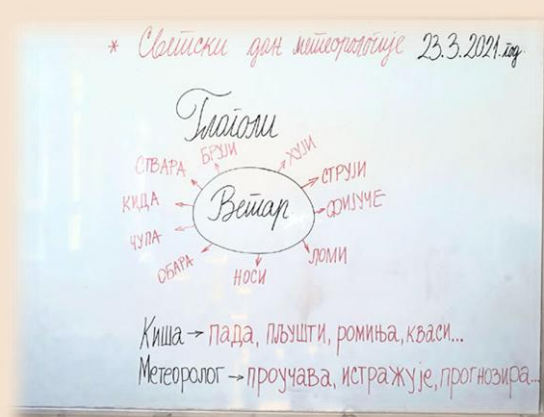 * Светски дан метеорологије 23.3.2021.год
Глаголи
СТВАРА БРУЈИ ХУЈИ
СТРУЈИ
КИДА Ветар ФИЈУЧЕ
ЧУПА
ОБАРА НОСИ ЛОМИ
Киша → пада, пљушти, ромиња, кваси...
Метеоролог → проучава, истражује, прогнозира...